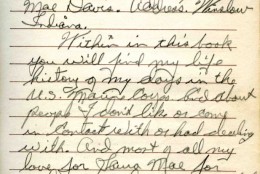 Mae Davis. Address. Winslow
Indiana.
Within in this book
you will find my life
history of my days in the
U.S. Marine Corps. And about
people I don't like or come
in Contact with or had dealing
with. And most of all my
love for Mae for